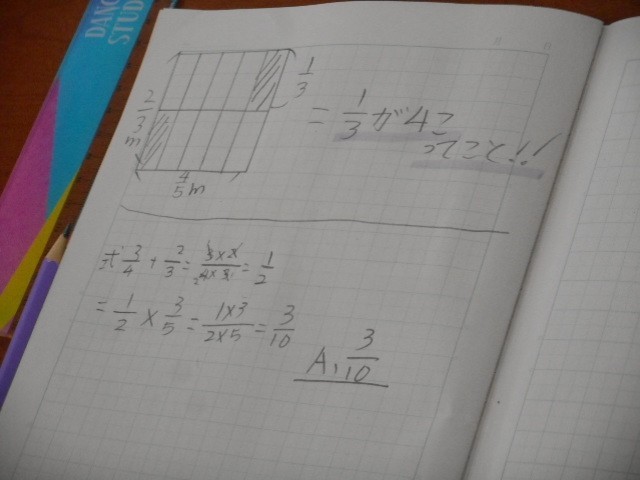 DANC
STUD
1/3
2/3 m
4/5 m
= 1/3 が4こ
ってこと!!
式 3/4 + 2/3 = 3×2/4×3 = 1/2
= 1/2 × 3/5 = 1×3/2×5 = 3/10
A, 3/10